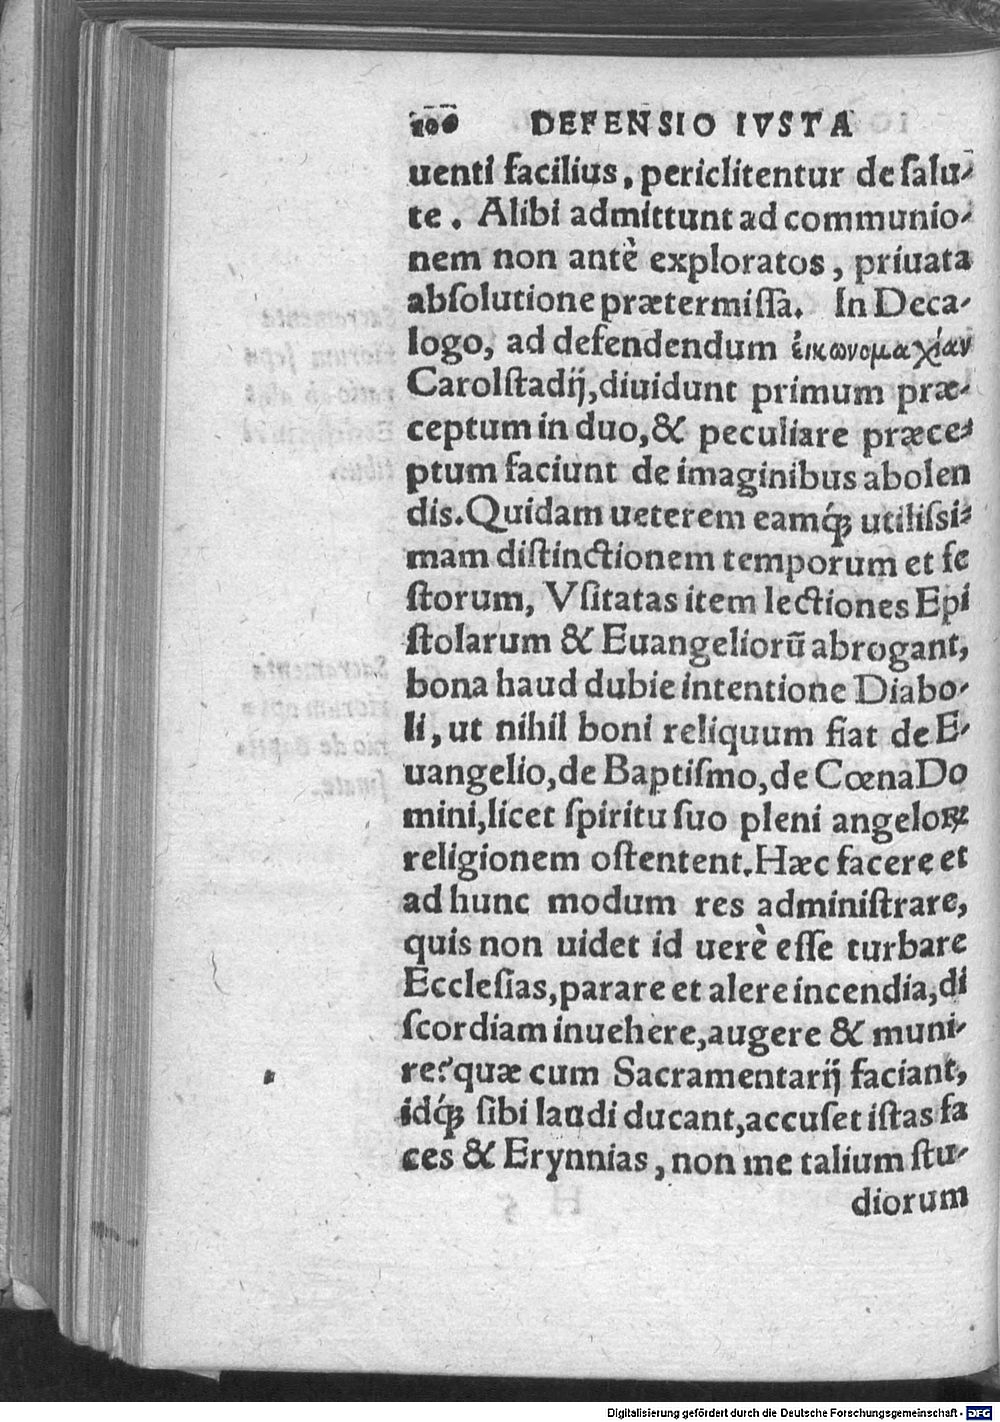 100 DEFENSIO IVSTA
uenti facilius, periclitentur de ſalu-
te. Alibi admittunt ad communio-
nem non antè exploratos, priuata
abſolutione prætermiſſa. In Deca-
logo, ad defendendum ἐικωνομαχίαν
Carolſtadij, diuidunt primum præ-
ceptum in duo, & peculiare præce-
ptum faciunt de imaginibus abolen
dis. Quidam ueterem eamq́; utiliſsi-
mam diſtinctionem temporum et fe
ſtorum, Vſitatas item lectiones Epi
ſtolarum & Euangeliorū abrogant,
bona haud dubie intentione Diabo-
li, ut nihil boni reliquum fiat de E-
uangelio, de Baptiſmo, de Cœna Do
mini, licet ſpiritu ſuo pleni angeloꝝ
religionem oſtentent. Hæc facere et
ad hunc modum res adminiſtrare,
quis non uidet id uerè eſſe turbare
Eccleſias, parare et alere incendia, di
ſcordiam inuehere, augere & muni-
re? quæ cum Sacramentarij faciant,
idq́; ſibi laudi ducant, accuſet iſtas fa
ces & Erynnias, non me talium ſtu-
diorum
Digitalisierung gefördert durch die Deutsche Forschungsgemeinschaft - DFG